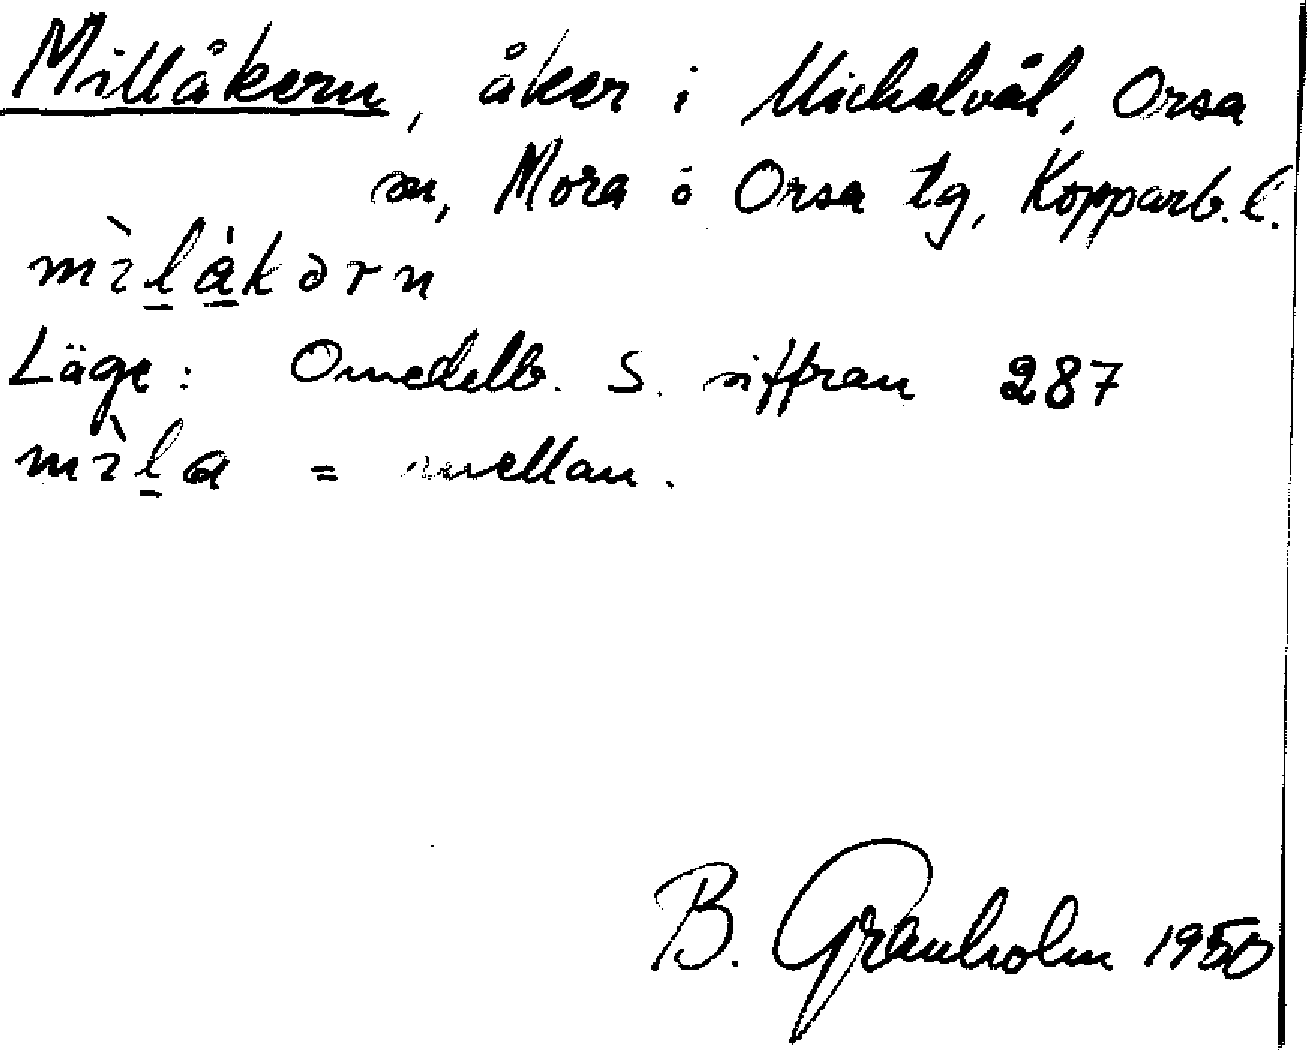 Millåkern, åker i Mickelvål, Orsa
sn, Mora o Orsa tg, Kopparb. l.
mìl̠å̠̀kərn
Läge: Omedelb. S. siffran 287
mìl̠a = mellan.
B. Granholm 1950